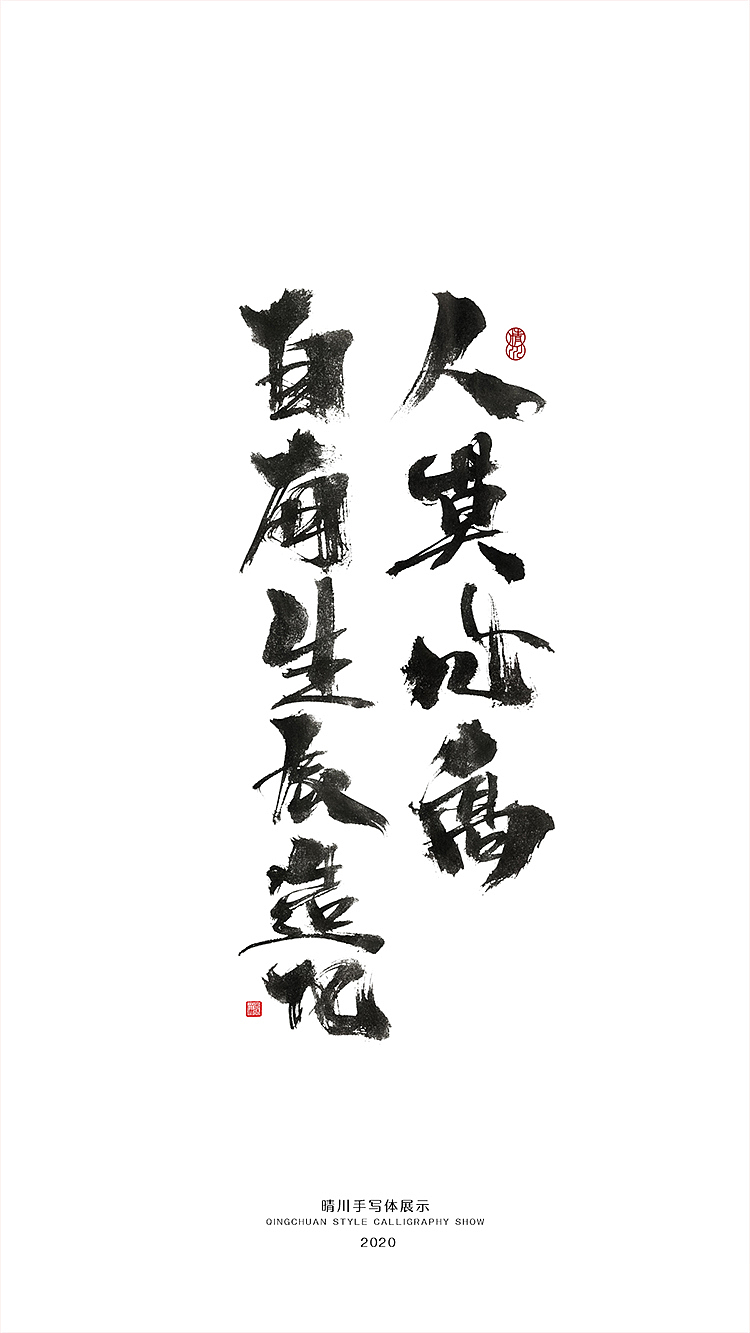 人莫心高
自有生辰造化
晴川
晴川手写体展示
QINGCHUAN STYLE CALLIGRAPHY SHOW
2020